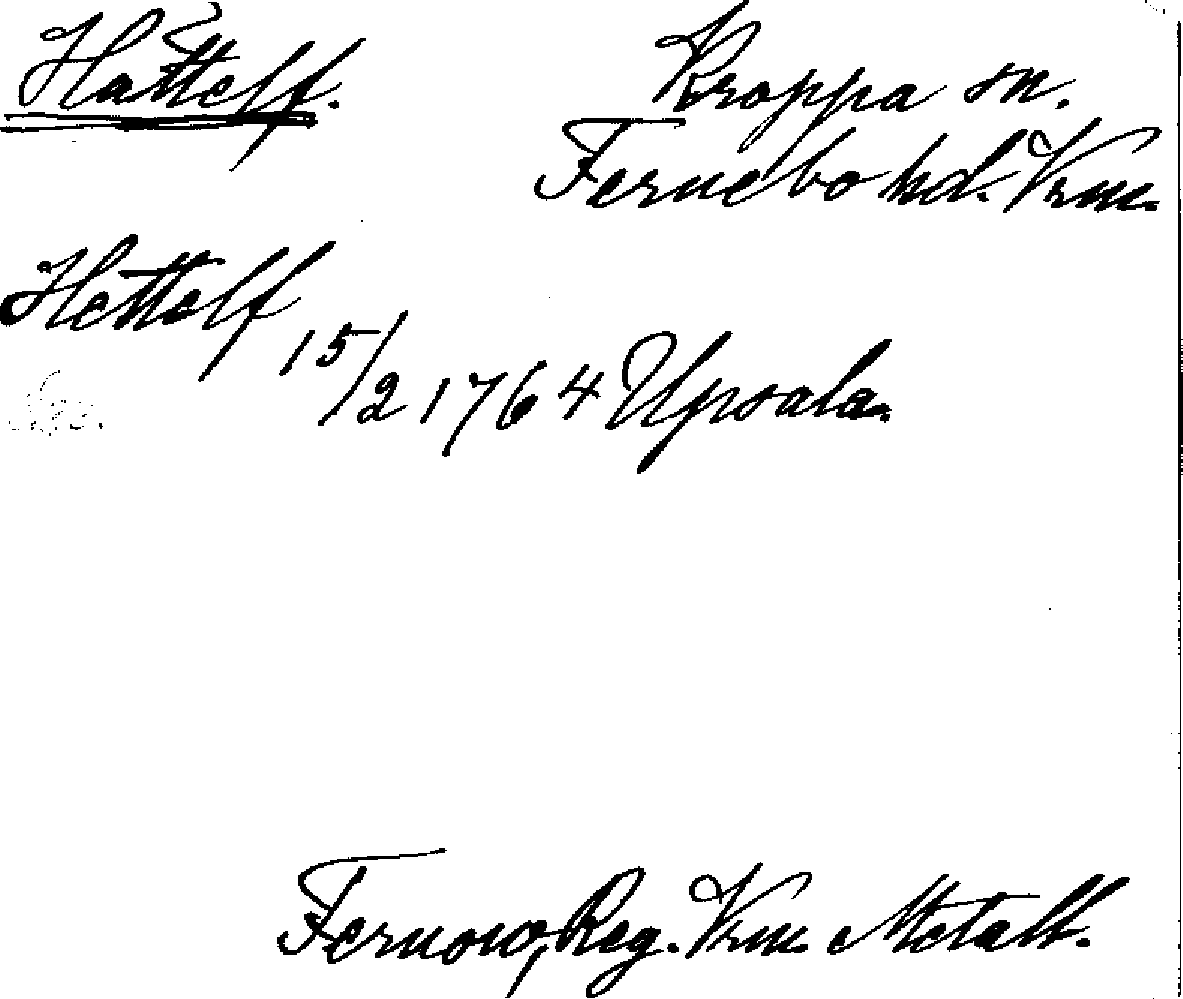 Hättelf.
Kroppa sn.
Fernebo hd. Vrm.
Hettelf 15/2 1764 Upsala.
Fernow, Reg. Vrm. Metall.